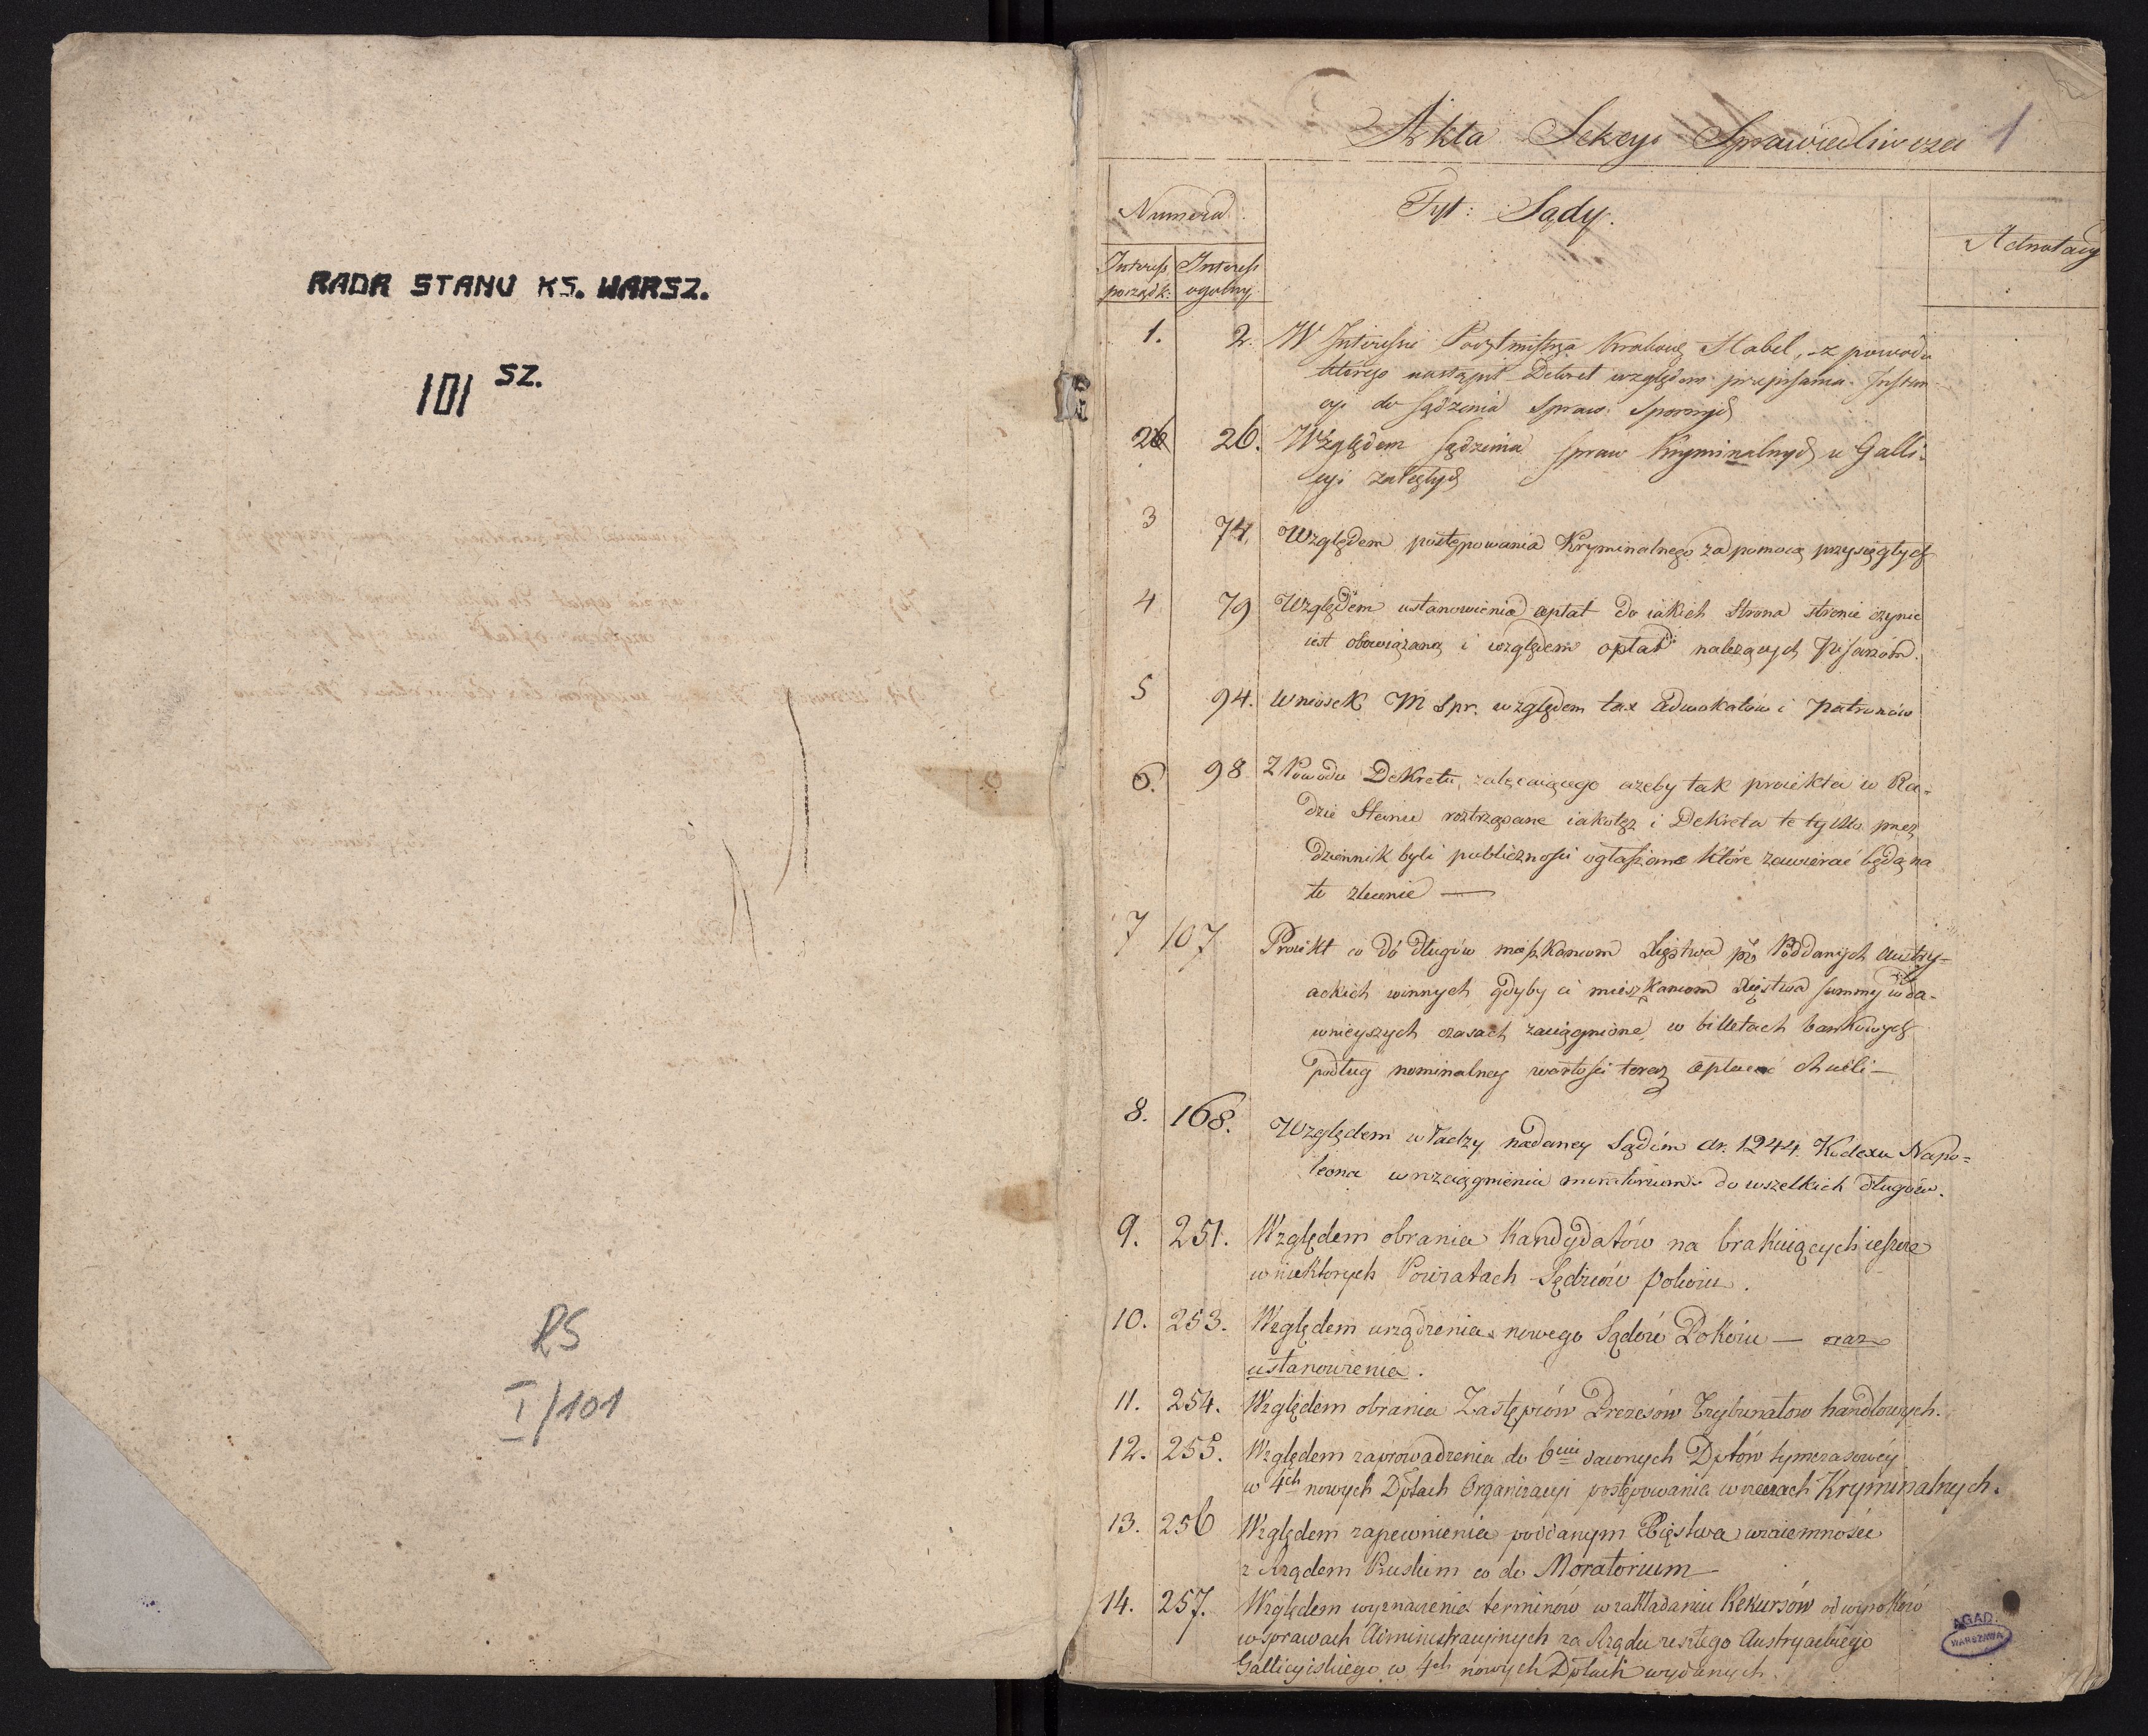 RADA STANU KS. WARSZ.
101 SZ.
RS
I/101
Akta Sekcyi Sprawiedliwcza 1
Numera
Tyt: Sądy.
Adnotacy
Interess porządk:
Interess ogolny
1. 2. W Interesie Pocztmistrza Krakows Habel, z powodu
którego nastąpił Dekret względem przepisania Instan-
cyi do sądzenia Spraw Spornych
26 26. Względem sądzenia spraw Kryminalnych w Galli-
cyi zaległych
3 74. Względem postępowania Kryminalnego za pomocą przysięgłych
4 79 Względem ustanowienia opłat do iakich Strona stronie czynić
iest obowiązaną i względem opłat należących Pisarzom.
5 94. Wniosek M Spr. względem tax Adwokatów i Patronów
6. 98 Z Powodu Dekretu, zalecaiącego ażeby tak proiekta w Ra-
dzie Stanu roztrząsane iakoteż i Dekreta te tylko przez
dziennik byli publiczności ogłaszane które zawierać będą na
to zlecenie —
7 107 Proiekt co do długów mieszkańcom Xięstwa przez Poddanych Austry-
ackich winnych gdyby ci mieszkańcom Xięstwa summy w da-
wnieyszych czasach zaciągnione w billetach bankowych
podług nominalney wartości teraz opłacać chcieli —
8. 168. Względem władzy nadaney Sądom ar. 1244. Kodexu Napo=
leona w rozciągnienia moratorium do wszelkich długów.
9. 251. Względem obrania Kandydatów na brakuiących ieszcze
w niektorych Powiatach Sędziów pokoiu.
10. 253. Względem urządzenia nowego Sądów Pokoiu — oraz
ustanowienia.
11. 254. Względem obrania Zastępców Prezesów Trybunałow handlowych.
12. 255. Względem zaprowadzenia do 6ciu dawnych Dptów tymczasowéy
w 4ch nowych Dptach Organizacyi postępowania w rzeczach Kryminalnych.
13. 256 Względem zapewnienia poddanym Xięstwa wzaiemności
z Rządem Ruskim co do Moratorium
14. 257. Względem wyznaczenia terminów w zakładaniu Rekursów od wyroków
w sprawach Administracyinych za Rządu zeszłego Austryackiego
Gallicyiskiego w 4ch nowych Dptach wydanych.
AGAD.
WARSZAWA